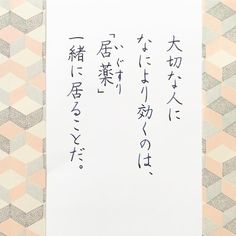 大切な人に
なにより効くのは、
「居薬」
いぐすり
一緒に居ることだ。